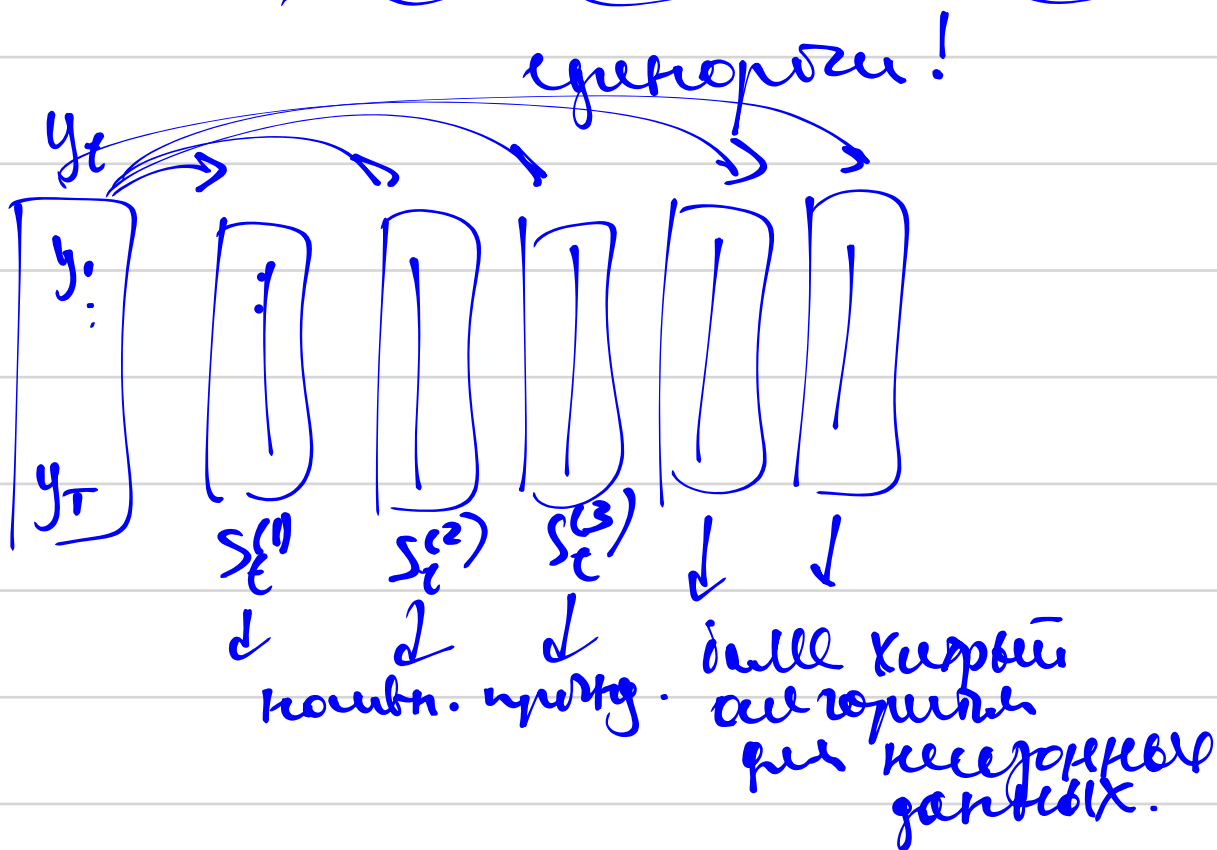 единороги!
y_t
y_1
⋮
y_T
S_t^{(1)} S_t^{(2)} S_t^{(3)}
наивн. прогноз. более хитрый
алгоритм
для несезонных
данных.